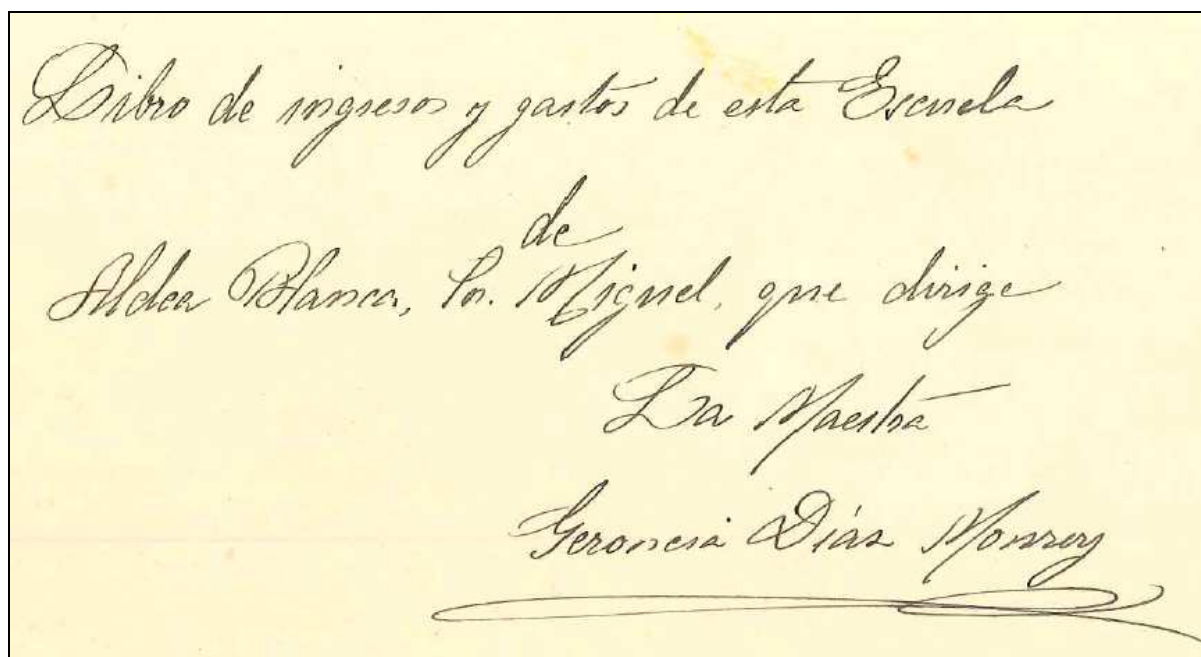 Libro de ingresos y gastos de esta Escuela
de
Aldea Blanca, Sn. Miguel, que dirige
La Maestra
Geroncia Días Monroy